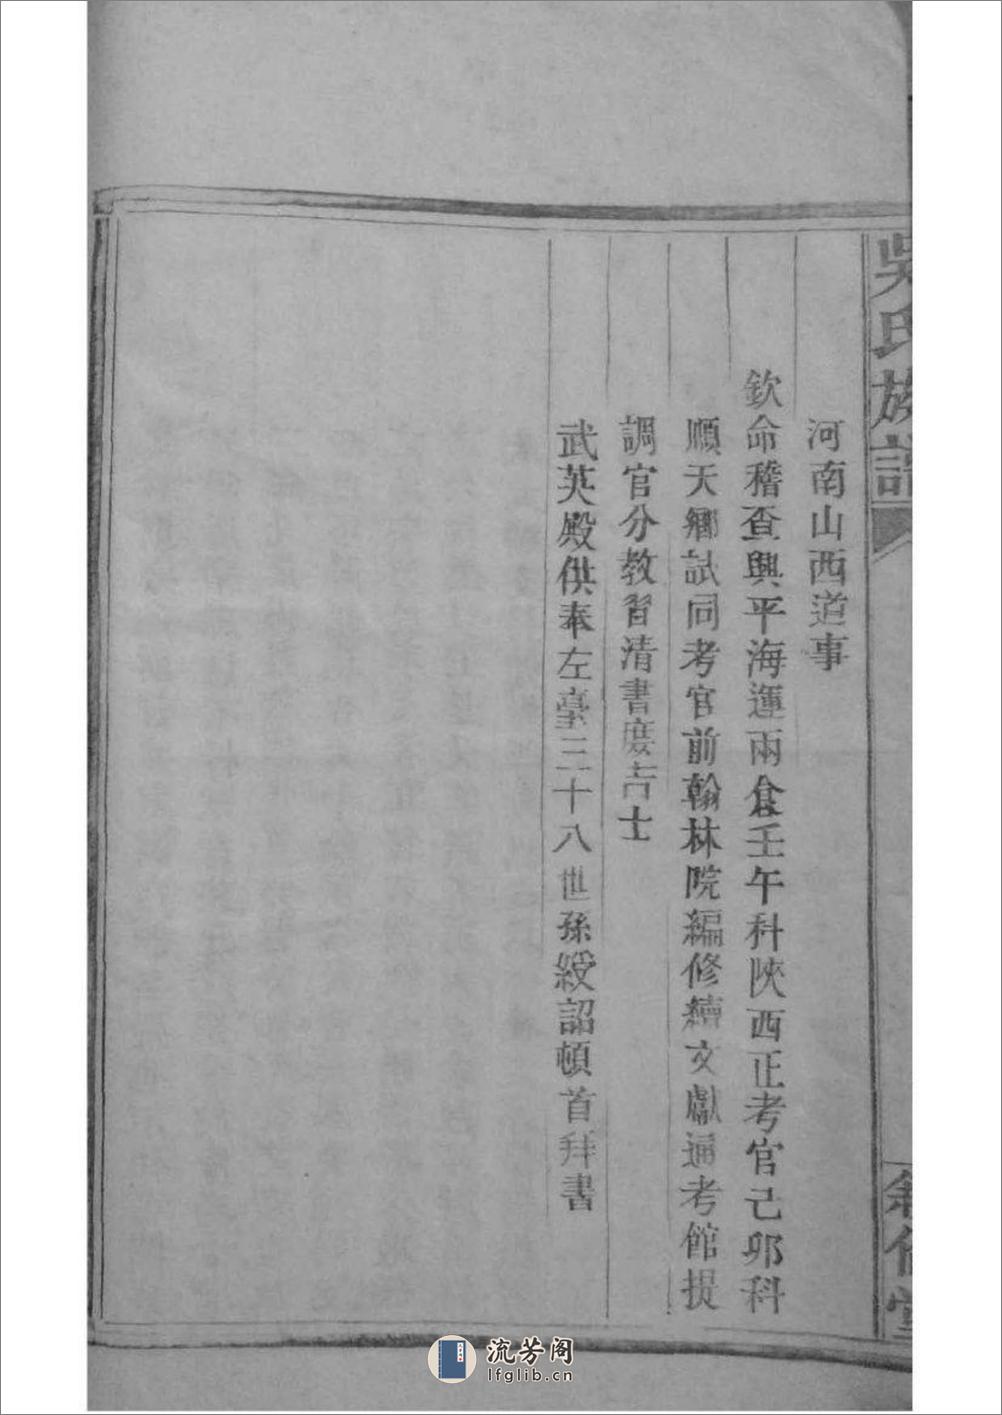 吳氏族譜
河南山西道事
欽命稽查興平海運兩倉壬午科陝西正考官己卯科
順天鄉試同考官前翰林院編修續文獻通考館提
調官分教習清書庶吉士
武英殿供奉左臺三十八世孫綬詔頓首拜書
流芳阁
lfglib.cn